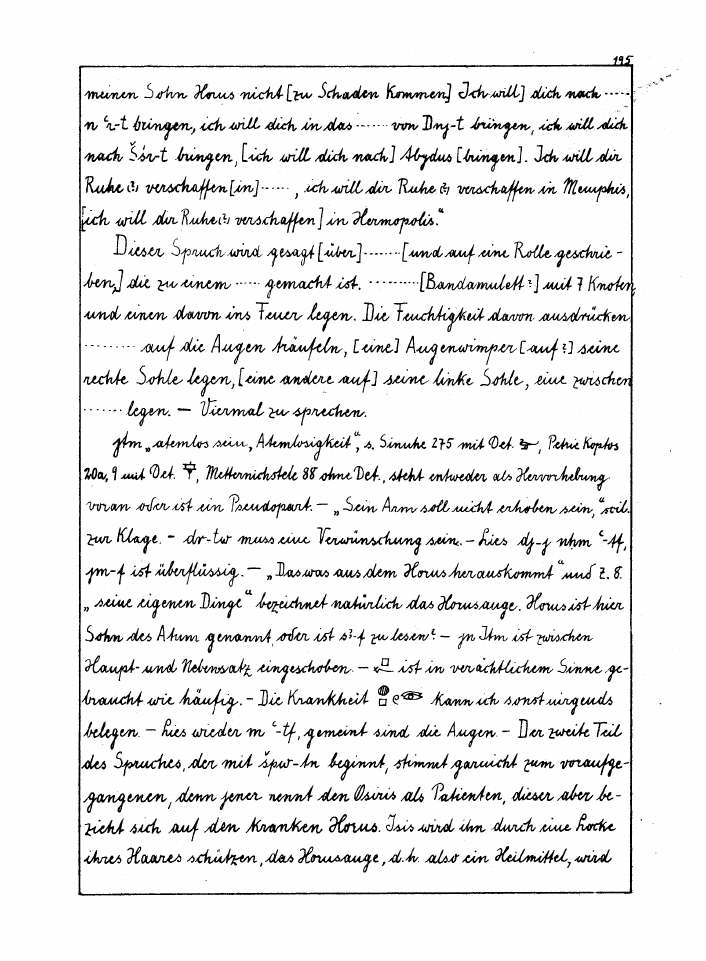 195
meinen Sohn Horus nicht [zu Schaden kommen] Ich will] dich nach ·····
n ꜥꜣ-t bringen, ich will dich in das ······ von Dnj-t bringen, ich will dich
nach Šśr-t bringen, [ich will dich nach] Abydus [bringen]. Ich will dir
Ruhe (?) verschaffen [in] ······, ich will dir Ruhe (?) verschaffen in Memphis,
[ich will dir Ruhe (?) verschaffen] in Hermopolis.“
Dieser Spruch wird gesagt [über] ······· [und auf eine Rolle geschrie-
ben,] die zu einem ····· gemacht ist. ·········· [Bandamulett?] mit 7 Knoten
und einen davon ins Feuer legen. Die Feuchtigkeit davon ausdrücken
········· auf die Augen träufeln, [eine] Augenwimper [auf?] seine
rechte Sohle legen, [eine andere auf] seine linke Sohle, eine zwischen
······· legen. — Viermal zu sprechen.
jtm „atemlos sein, Atemlosigkeit“, s. Sinuhe 275 mit Det. , Petrie Koptos
20a, 9 mit Det. , Metternichstele 88 ohne Det., steht entweder als Hervorhebung
voran oder ist ein Pseudopart. — „Sein Arm soll nicht erhoben sein,“ scil.
zur Klage. - dr-tw muss eine Verwünschung sein. - Lies dj-j nḥm ꜥ-tf,
jm-f ist überflüssig. — „Das was aus dem Horus herauskommt“ und Z. 8.
„seine eigenen Dinge“ bezeichnet natürlich das Horusauge. Horus ist hier
Sohn des Atum genannt, oder ist sꜣ-f zu lesen? — jn Itm ist zwischen
Haupt- und Nebensatz eingeschoben. — ist in verächtlichem Sinne ge-
braucht wie häufig. - Die Krankheit kann ich sonst nirgends
belegen. — Lies wieder m ꜥ-tf, gemeint sind die Augen. - Der zweite Teil
des Spruches, der mit špw-tn beginnt, stimmt garnicht zum voraufge-
gangenen, denn jener nennt den Osiris als Patienten, dieser aber be-
zieht sich auf den kranken Horus. Isis wird ihn durch eine Locke
ihres Haares schützen, das Horusauge, d.h. also ein Heilmittel, wird